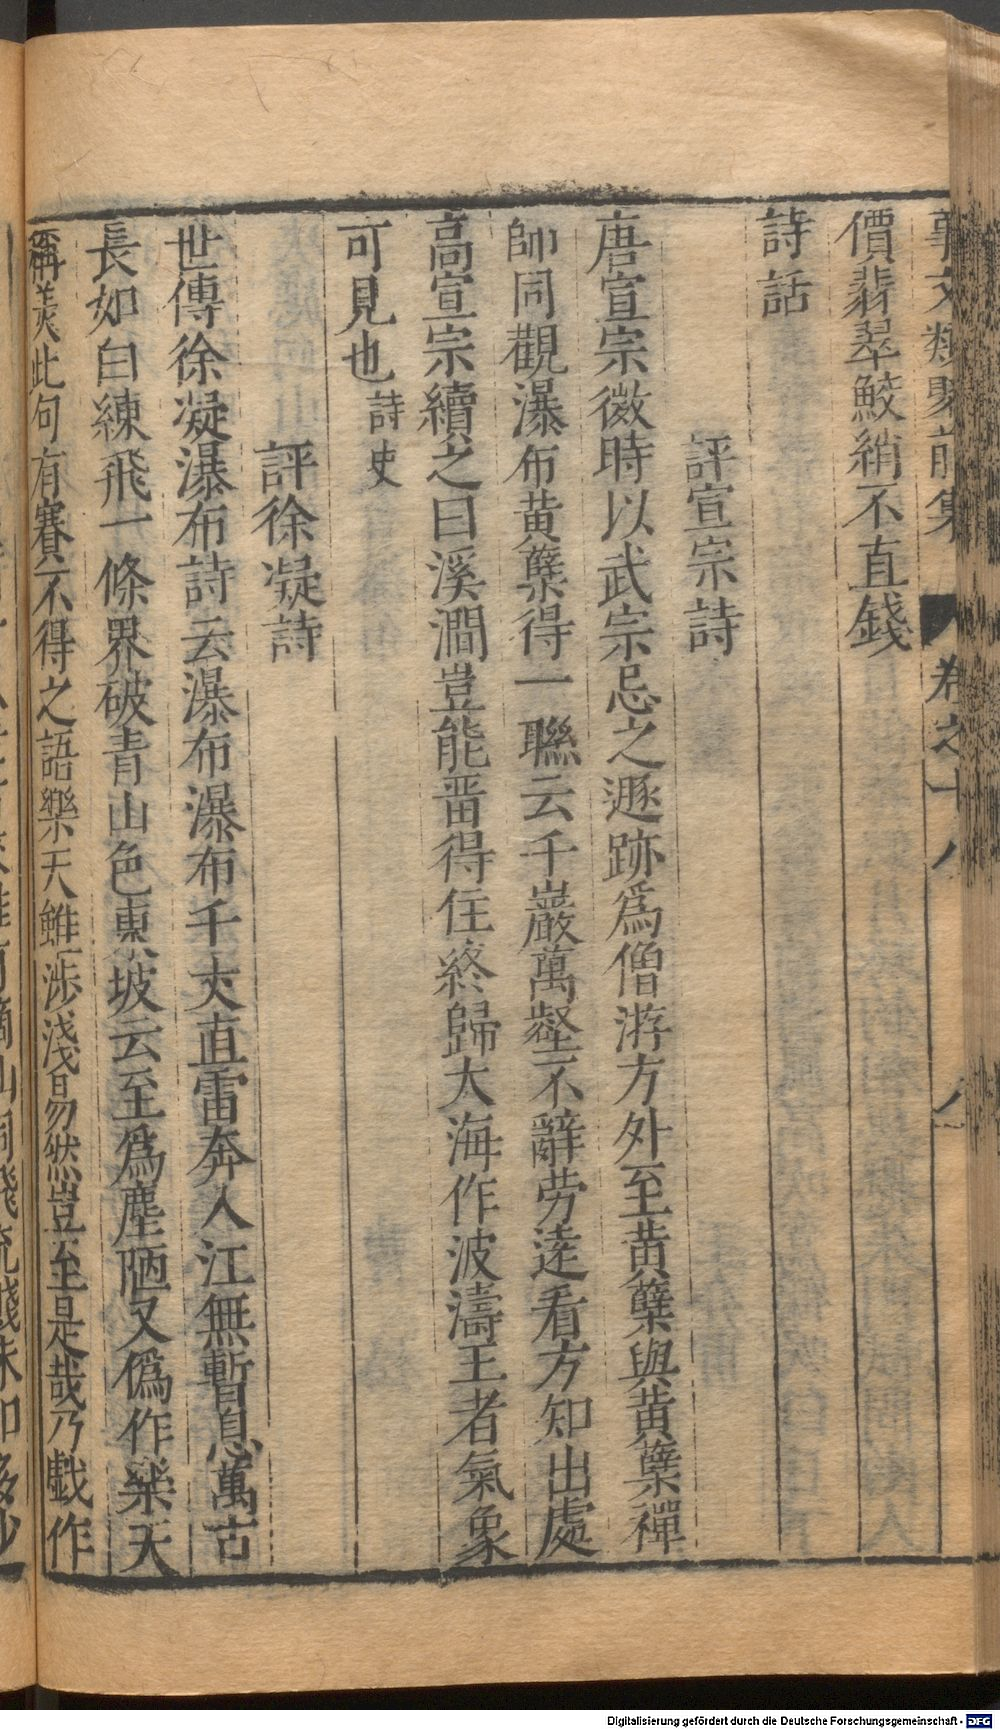 事文類聚前集 卷之十八 八
價翡翠鮫綃不直錢
詩話
評宣宗詩
唐宣宗微時以武宗忌之遯跡為僧游方外至黄蘗與黄蘗禪
師同觀瀑布黄蘗得一聯云千巖萬壑不辭勞逺看方知出處
高宣宗續之曰溪澗豈能畱得住終歸大海作波濤王者氣象
可見也詩史
評徐凝詩
世傳徐凝瀑布詩云瀑布瀑布千丈直雷奔入江無暫息萬古
長如白練飛一條界破青山色東坡云至爲塵陋又僞作樂天
稱美此句有賽不得之語樂天雖涉淺易然豈至是哉乃戱作
Digitalisierung gefördert durch die Deutsche Forschungsgemeinschaft - DFG